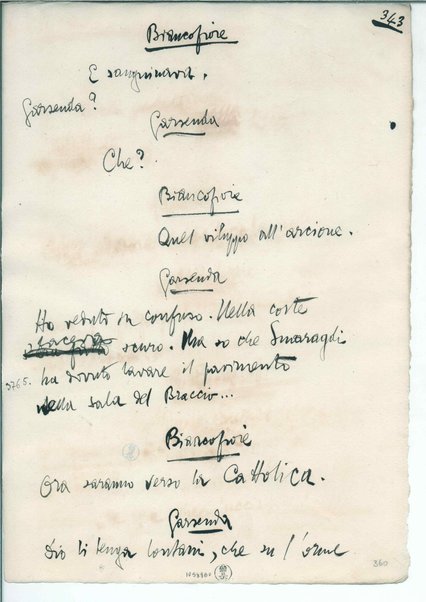 343
Biancofiore
E sanguinava.
Garsenda?
Garsenda
Che?
Biancofiore
Quel viluppo all'arcione.
Garsenda
Ho veduto in confuso. Nella corte
faceva scuro. Ma so che Smaragdi
3265. ha dovuto lavare il pavimento
nella sala del Braccio...
Biancofiore
Ora saranno verso la Cattolica.
Garsenda
Dio li tenga lontani, che su l'orme
360